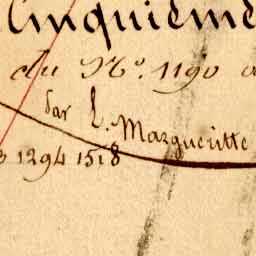 Cinquième
du N°. 1190 a
Par L. Margueritte
3 1294 1518